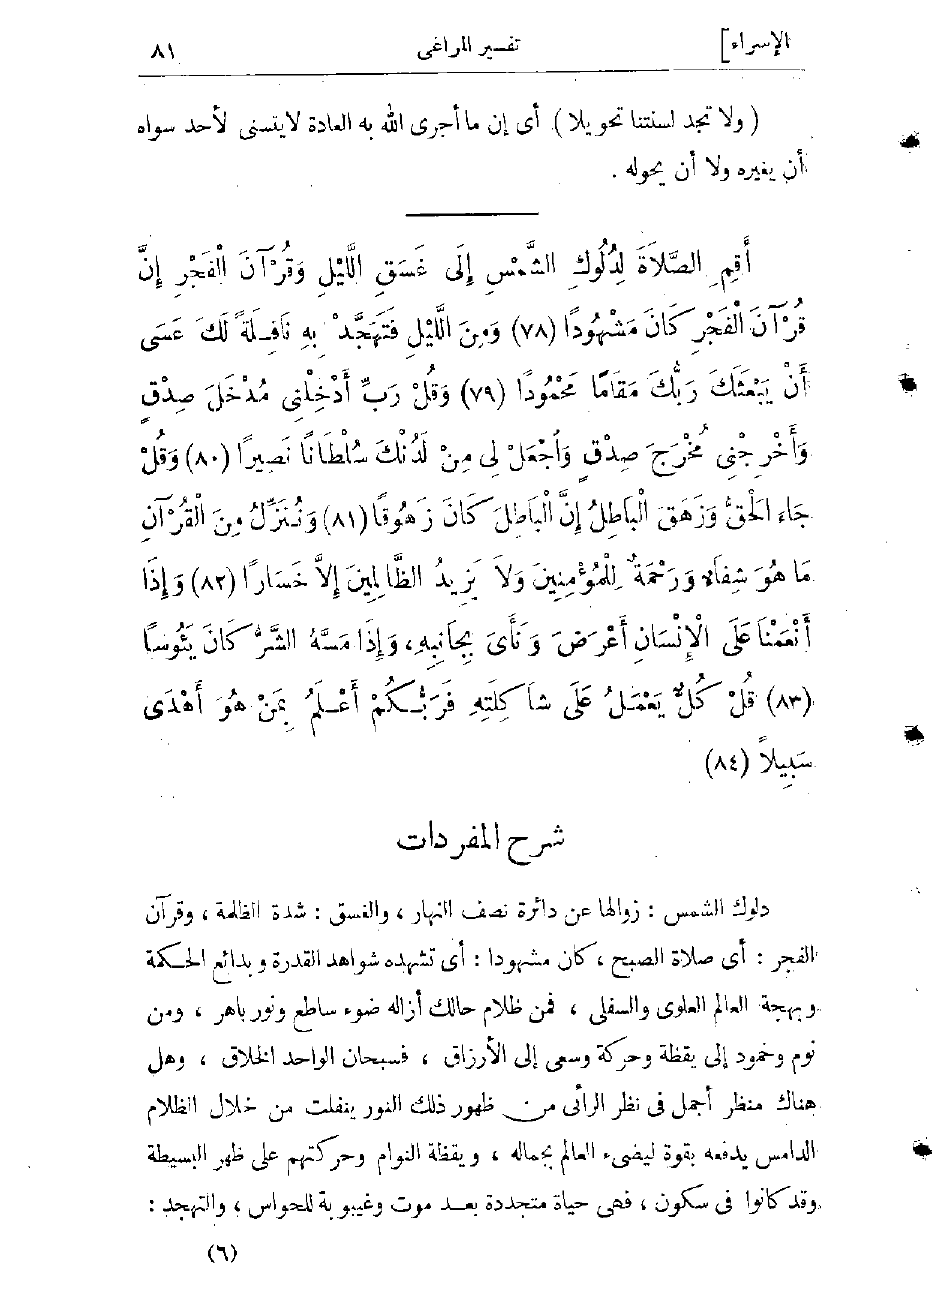 الإسراء]
تفسير المراغى
٨١
( ولا تجد لسنتنا تحويلا ) أى إن ما أجرى الله به العادة لايتسنى لأحد سواه
أن يغيره ولا أن يحوله .
أَقِمِ الصَّلَاةَ لِدُلُوكِ الشَّمْسِ إِلَى غَسَقِ اللَّيْلِ وَقُرْآنَ الْفَجْرِ إِنَّ
قُرْآنَ الْفَجْرِ كَانَ مَشْهُودًا (٧٨) وَمِنَ اللَّيْلِ فَتَهَجَّدْ بِهِ نَافِلَةً لَكَ عَسَى
أَنْ يَبْعَثَكَ رَبُّكَ مَقَامًا مَحْمُودًا (٧٩) وَقُلْ رَبِّ أَدْخِلْنِى مُدْخَلَ صِدْقٍ
وَأَخْرِجْنِى مُخْرَجَ صِدْقٍ وَاجْعَلْ لِى مِنْ لَدُنْكَ سُلْطَانًا نَصِيرًا (٨٠) وَقُلْ
جَاءَ الْحَقُّ وَزَهَقَ الْبَاطِلُ إِنَّ الْبَاطِلَ كَانَ زَهُوقًا (٨١) وَنُنَزِّلُ مِنَ الْقُرْآنِ
مَا هُوَ شِفَاءٌ وَرَحْمَةٌ لِلْمُؤْمِنِينَ وَلَا يَزِيدُ الظَّالِمِينَ إِلاَّ خَسَارًا (٨٢) وَإِذَا
أَنْعَمْنَا عَلَى الْإِنْسَانِ أَعْرَضَ وَنَأَى بِجَانِبِهِ، وَإِذَا مَسَّهُ الشَّرُّ كَانَ يَئُوسًا
(٨٣) قُلْ كُلٌّ يَعْمَلُ عَلَى شَاكِلَتِهِ فَرَبُّكُمْ أَعْلَمُ بِمَنْ هُوَ أَهْدَى
سَبِيلاً (٨٤)
شرح المفردات
دلوك الشمس : زوالها عن دائرة نصف النهار ، والغسق : شدة الظلمة ، وقرآن
الفجر : أى صلاة الصبح ، كان مشهودا : أى تشهده شواهد القدرة وبدائع الحكمة
وبهجة العالم العلوى والسفلى ، فمن ظلام حالك أزاله ضوء ساطع ونور باهر ، ومن
نوم وخمود إلى يقظة وحركة وسعى إلى الأرزاق ، فسبحان الواحد الخلاق ، وهل
هناك منظر أجمل فى نظر الرأى من ظهور ذلك النور ينفلت من خلال الظلام
الدامس يدفعه بقوة ليضىء العالم بجماله ، ويقظة النوام وحركتهم على ظهر البسيطة
وقد كانوا فى سكون ، فهى حياة متجددة بعد موت وغيبوبة للحواس ، والتهجد :
(٦)